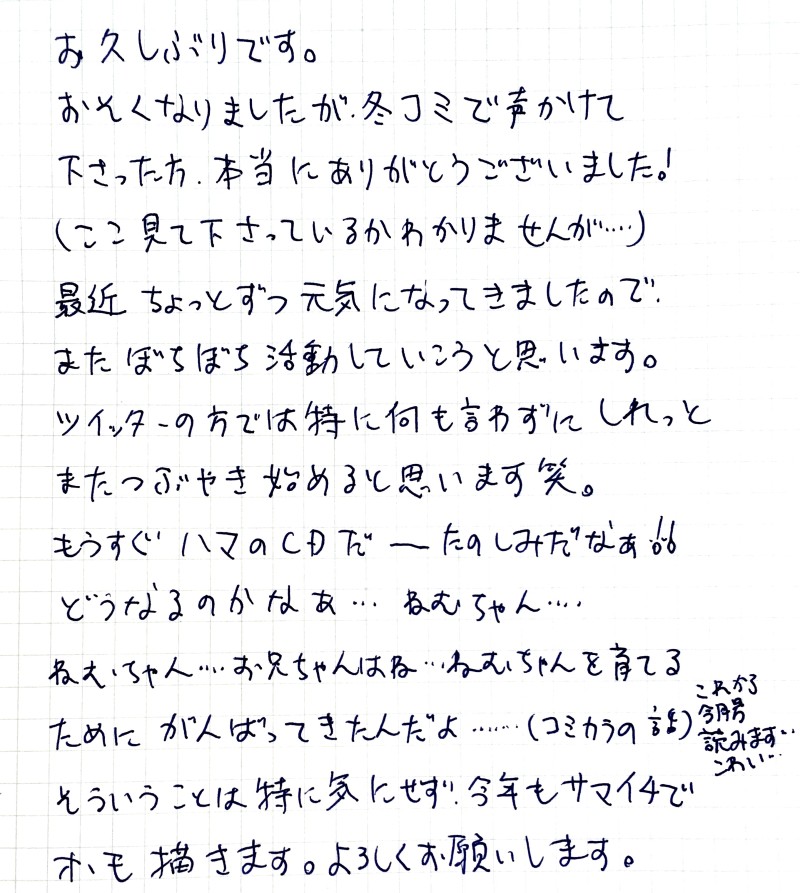 お久しぶりです。
おそくなりましたが、冬コミで声かけて
下さった方、本当にありがとうございました!
(ここ見て下さっているかわかりませんが…‥)
最近ちょっとずつ元気になってきましたので、
またぼちぼち活動していこうと思います。
ツイッターの方では特に何も言わずにしれっと
またつぶやき始めると思います笑。
もうすぐハマのCDだ〜たのしみだなぁ!!
どうなるのかなぁ…ねむちゃん…‥
ねむちゃん…‥お兄ちゃんはね…ねむちゃんを育てる
ためにがんばってきたんだよ……(コミカラの話)
これから
今月号
読みます‥
こわい…
そういうことは特に気にせず、今年もサマイチで
ホモ描きます。よろしくお願いします。